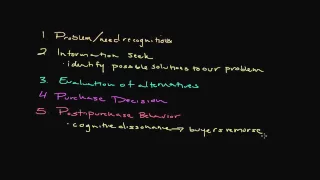 1 Problem/need recognition
2 Information Seek
• identify possible solutions to our problem
3. Evaluation of alternatives
4 Purchase Decision
5. Postpurchase Behavior
• cognitive dissonance → buyers remorse